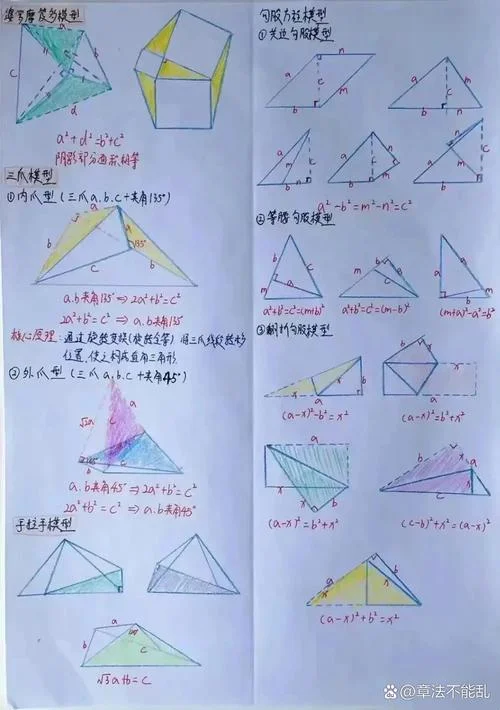 婆罗摩笈多模型
a²+d²=b²+c²
阴影部分面积相等
三爪模型
①内爪型(三爪a.b.c+夹角135°)
a.b夹角135° ⇒ 2a²+b²=c²
2a²+b²=c² ⇒ a.b夹角135
核心原理:通过旋转变换(旋转全等)将三爪线段转移
位置,使之构成直角三角形
②外爪型(三爪a.b.c+夹角45°)
√2a
a.b夹角45° ⇒ 2a²+b²=c²
2a²+b²=c² ⇒ a.b夹角45°
手拉手模型
√3a+b=c
勾股方程模型
①共边勾股模型
a²-b²=m²-n²=c²
②等腰勾股模型
a²+b²=c²=(m+b)²
a²+b²=c²=(m-b)²
(m+a)²-a²=b²
③翻折勾股模型
(a-x)²-b²=x²
(a-x)²=b²+x²
(a-x)²=b²+x²
(c-b)²+x²=(a-x)²
(a-x)²+b²=x²
Bai百家号/章法不能乱